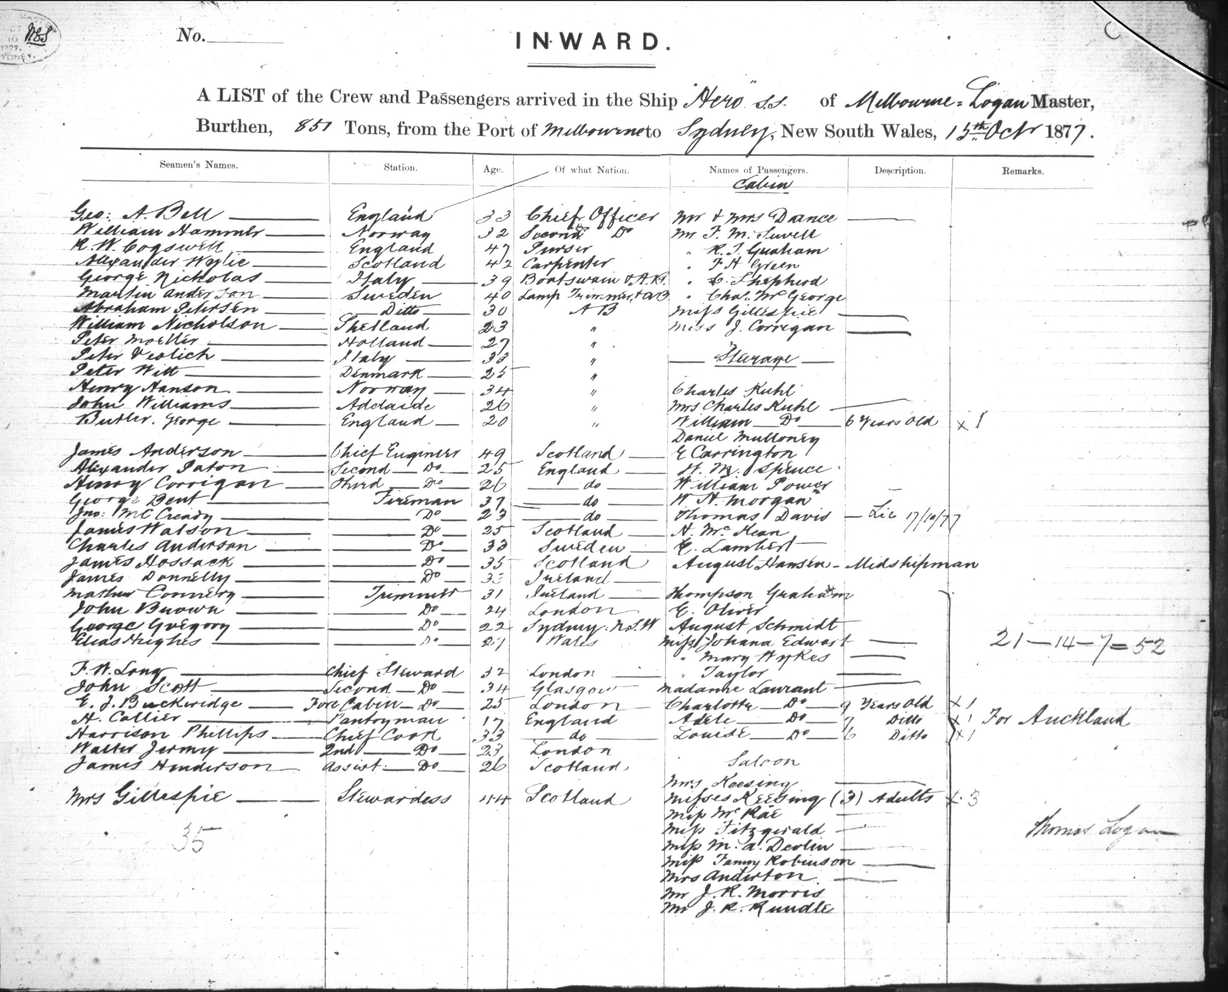 No.
INWARD.
A LIST of the Crew and Passengers arrived in the Ship "Hero" s.s. of Melbourne = Logan Master,
Burthen, 851 Tons, from the Port of Melbourne to Sydney, New South Wales, 15th Octr 1877.
Seamen's Names. Station. Age. Of what Nation. Names of Passengers. Description. Remarks.
Cabin
Geo: A. Bell England 33 Chief Officer Mr & Mrs Dance
William Hammer Norway 32 Second Do Mr F. M. Sewell
R. W. Cogswell England 47 Purser " R. J. Graham
Alexander Wylie Scotland 42 Carpenter " F H Green
George Nicholas Italy 39 Boatswain & A.B. " C. Shepherd
Martin Anderson Sweden 40 Lamp Trimmer, & AB " Chas. McGeorge
Abraham Petersen Ditto 30 A B Miss Gillespie
William Nicholson Shetland 23 " Miss J. Corrigan
Peter Moeller Holland 27 "
Peter Veolich Italy 33 " Steerage
Peter Witt Denmark 25 "
Henry Hanson Norway 34 " Charles Kuhl
John Williams Adelaide 26 " Mrs Charles Kuhl
Butler. George England 20 " William Do 6 Years Old x 1
Daniel Mulloney
James Anderson Chief Engineer 49 Scotland E Carrington
Alexander Paton Second Do 25 England H. M. Spruce
Henry Corrigan Third Do 26 do William Power
George Bent Fireman 37 do W. H. Morgan
Jno: McCready Do 23 do Thomas Davis Lic 17/10/77
James Watson Do 25 Scotland A. McKean
Charles Anderson Do 33 Sweden E. Lambert
James Hossack Do 35 Scotland August Hansen - Midshipman
James Donnelly Do 33 Ireland
Mathew Connery Trimmer 31 Ireland Thompson Graham
John Brown Do 24 London E. Oliver
George Gregory Do 22 Sydney. N.S.W August Schmidt
Elias Hughes Do 27 Wales Miss Johana Edwart 21-14-7=52
" Mary Wykes
F. W. Long Chief Steward 32 London " Taylor
John Scott Second Do 34 Glasgow Madame Laurant
E. J. Buckeridge Fore Cabin Do 25 London Charlotte Do 9 Years Old x 1
H. Collier Pantryman 17 England Adele Do 7 Ditto x 1 For Auckland
Harrison Phillips Chief Cook 33 do Louise Do 6 Ditto x 1
Walter Jermy 2nd Do 23 London
James Henderson Assist. Do 26 Scotland Saloon
Mrs Keesing
Mrs Gillespie Stewardess 44 Scotland Misses Keesing (3) Adults x 3
Miss McRae
35 Miss Fitzgerald Thomas Logan
Miss M. A. Devlin
Miss Fanny Robinson
Mrs Anderton
Mr J. R. Morris
Mr J. R. Rundle